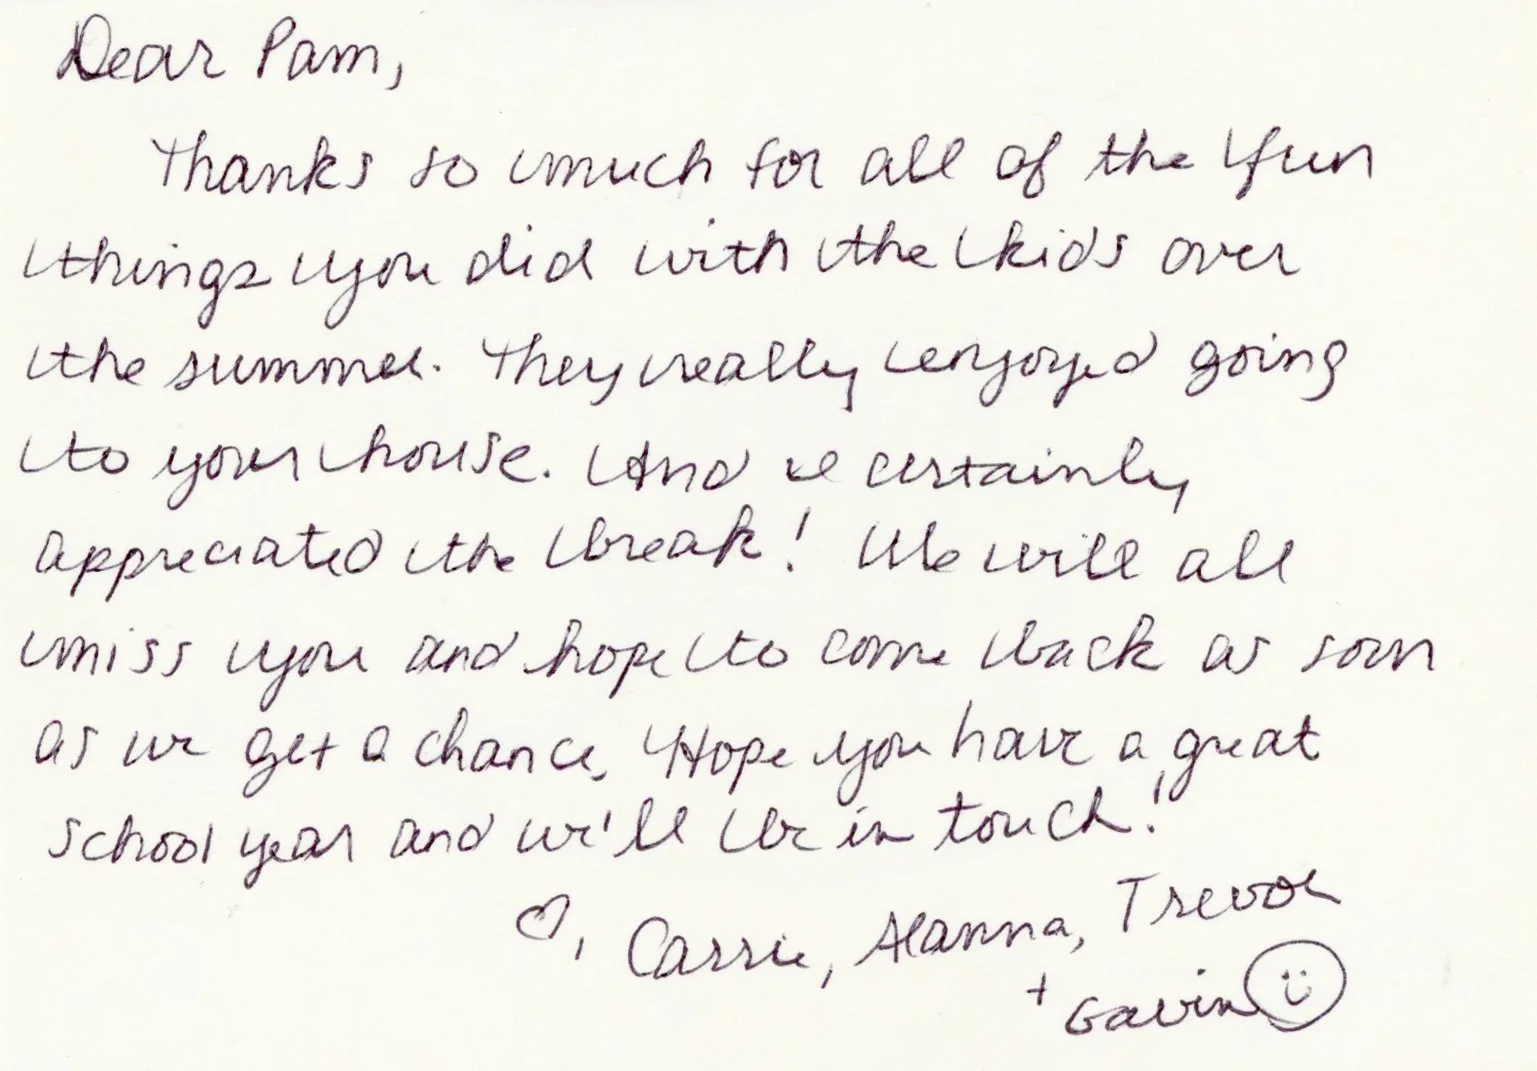 Dear Pam,
Thanks so much for all of the fun
things you did with the kids over
the summer. They really enjoyed going
to your house. And I certainly
appreciated the break! We will all
miss you and hope to come back as soon
as we get a chance. Hope you have a great
school year and we'll be in touch!
♡, Carrie, Alanna, Trevor
+ Gavin ☺